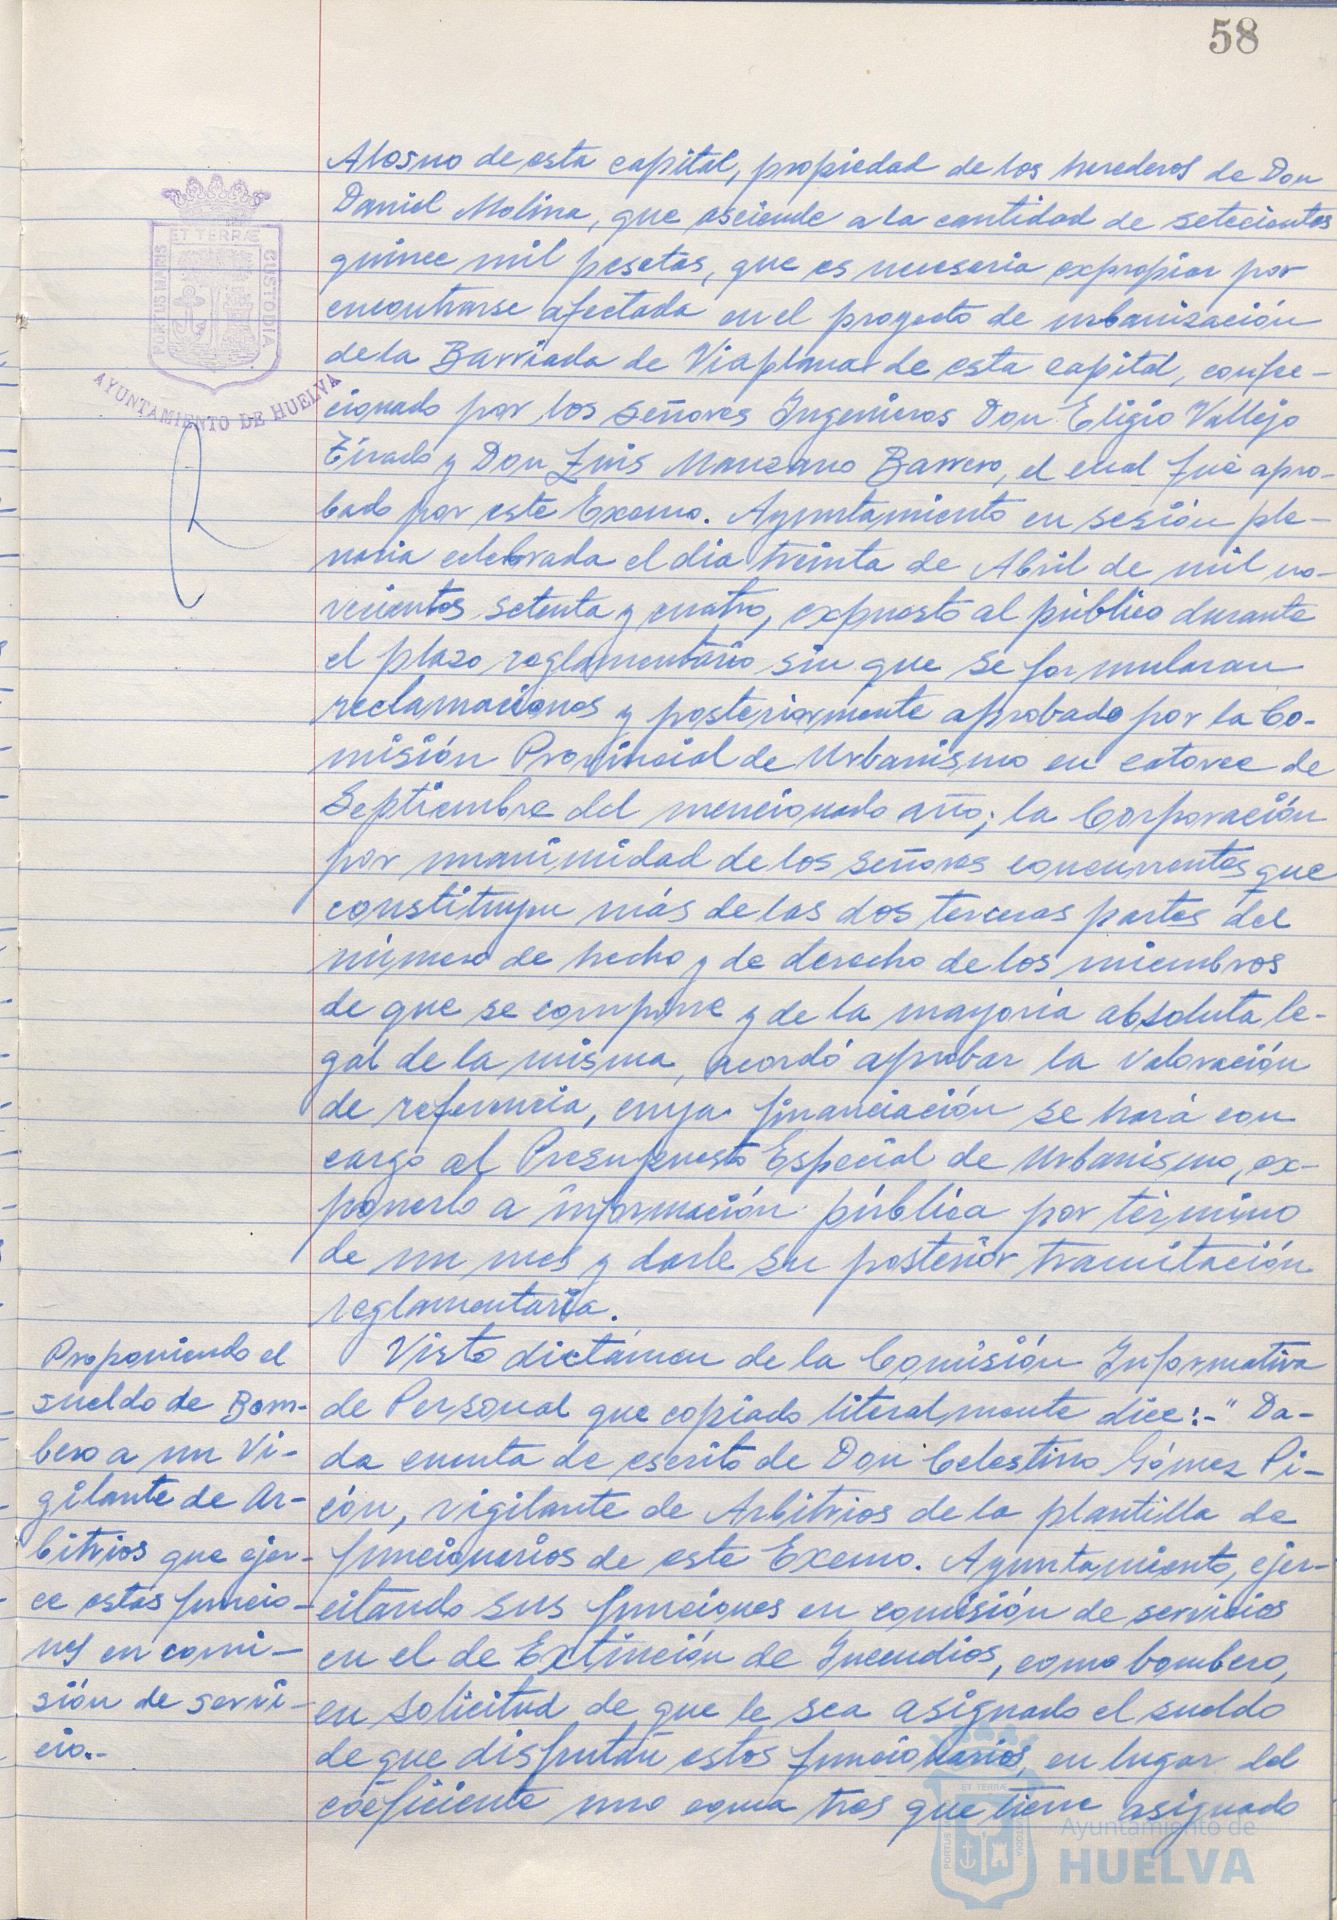 58
PORTUS MARIS
ET TERRÆ
CUSTODIA
AYUNTAMIENTO DE HUELVA
Alosno de esta capital, propiedad de los herederos de Don
Daniel Molina, que asciende a la cantidad de setecientas
quince mil pesetas, que es necesaria expropiar por
encontrarse afectada en el proyecto de urbanización
de la Barriada de Viaplana de esta capital, confec-
cionado por los señores Ingenieros Don Eligio Vallejo
Tirado y Don Luis Manzano Barrero, el cual fué apro-
bado por este Excmo. Ayuntamiento en sesión ple-
naria celebrada el dia treinta de Abril de mil no-
vecientos setenta y cuatro, expuesto al público durante
el plazo reglamentario sin que se formularan
reclamaciones y posteriormente aprobado por la Co-
misión Provincial de Urbanismo en catorce de
Septiembre del mencionado año; la Corporación
por unanimidad de los señores concurrentes que
constituyen más de las dos terceras partes del
número de hecho y de derecho de los miembros
de que se compone y de la mayoría absoluta le-
gal de la misma, acordó aprobar la valoración
de referencia, cuya financiación se hará con
cargo al Presupuesto Especial de Urbanismo, ex-
ponerlo a información pública por término
de un mes y darle su posterior tramitación
reglamentaria.
Proponiendo el
sueldo de Bom-
bero a un Vi-
gilante de Ar-
bitrios que ejer-
ce estas funcio-
nes en comi-
sión de servi-
cio.-
Visto dictámen de la Comisión Informativa
de Personal que copiado literalmente dice:-" Da-
da cuenta de escrito de Don Celestino Gómez Pi-
cón, vigilante de Arbitrios de la plantilla de
funcionarios de este Excmo. Ayuntamiento, ejer-
citando sus funciones en comisión de servicios
en el de Extinción de Incendios, como bombero,
en solicitud de que le sea asignado el sueldo
de que disfrutan estos funcionarios, en lugar del
coeficiente uno coma tres que tiene asignado
Ayuntamiento de
HUELVA